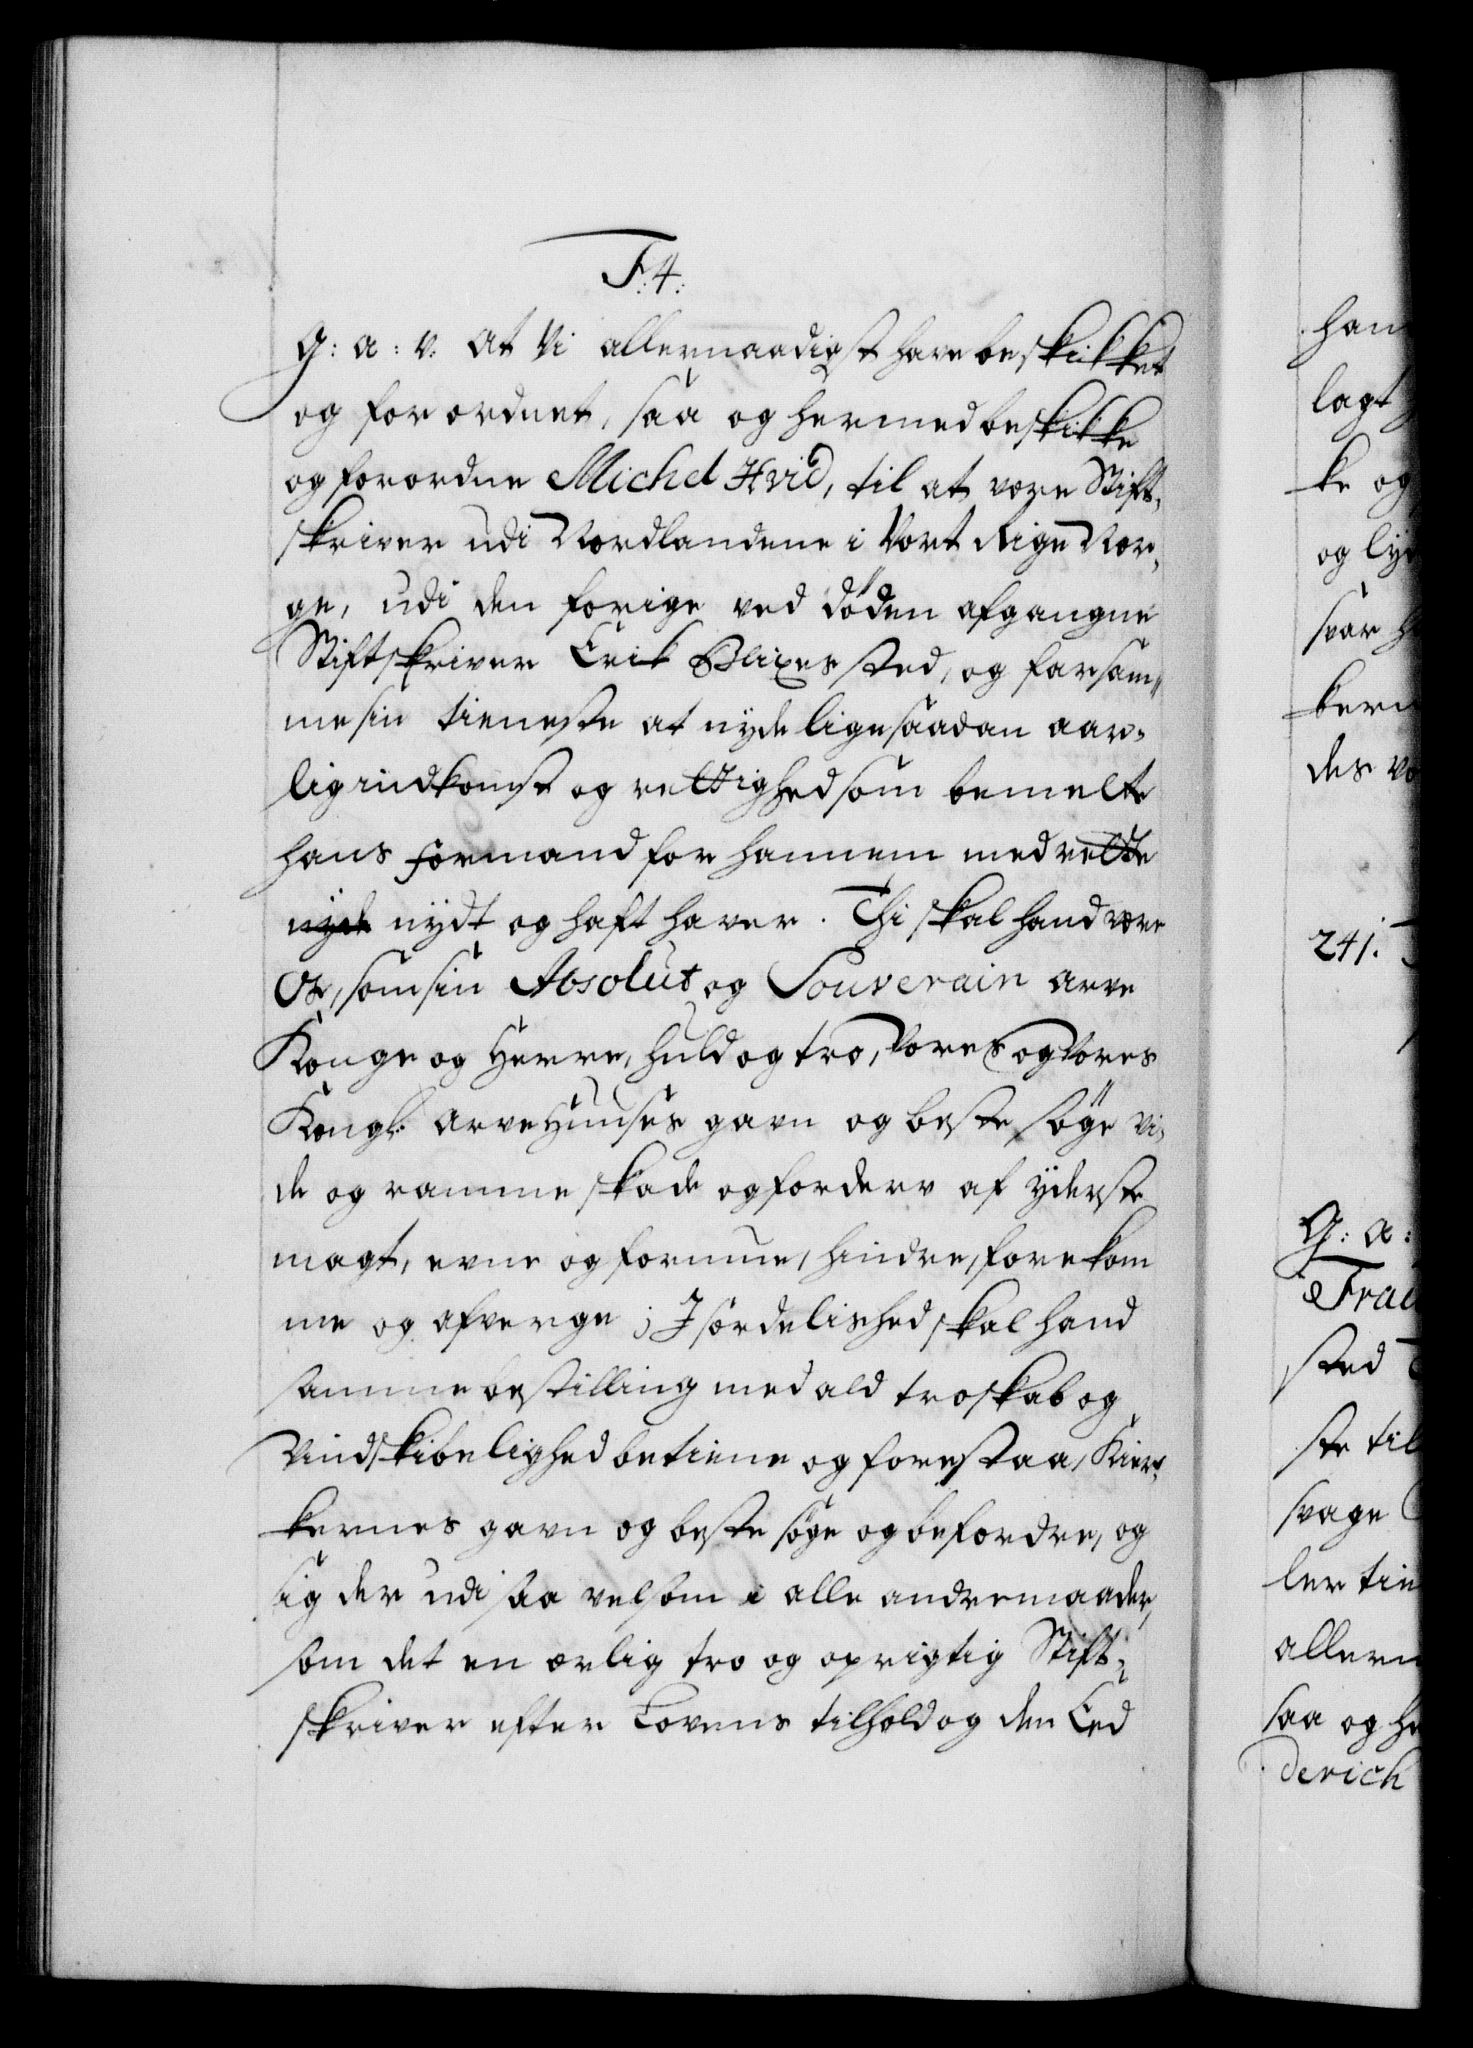 F: 4:
G: a: v. At Vi allernaadigst have beskikket
og forordnet, saa og hermed beskikke
og forordne Michel Hvid, til at være Stift-
skriver udi Nordlandene i Vort Rige Nor-
ge, udi den forige ved döden afgangne
Stiftskriver Erik Blixes sted, og for sam-
me sin tieneste at nyde lige saadan aar-
lig indkomst og rettighed som bemelte
hans Formand for hannem med rette
nyde nydt og haft haver. Thi skal hand være
Os, som sin Absolut og Souverain arve
Konge og Herre, huld og tro, Vores og Vores
Kongl: arve Huuses gavn og beste söge vi-
de og ramme skade og forderv af yderste
magt, evne og formue, hindre, forekom
me og afverge; Isærdelished skal hand
samme bestilling med ald troskab og
Vindskibelighed betiene og forestaa, Kier-
kernes gavn og beste söge og befordre, og
sig der udi saa vel som i alle andre maader,
som det en ærlig tro og oprigtig Stift-
skriver efter Lovens tilhold og den Eed
han
lagt
ke og
og ly
svar
kern
des
241.
G: a:
Frau
sted
ste til
svage
ler tie
allern
saa og he
derich